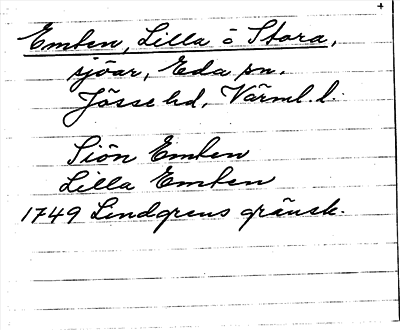 Emten, Lilla o Stora,
sjöar, Eda sn.
Jösse hd, Värml. l.
Siön Emten
Lilla Emten
1749 Lindgrens gränsk.